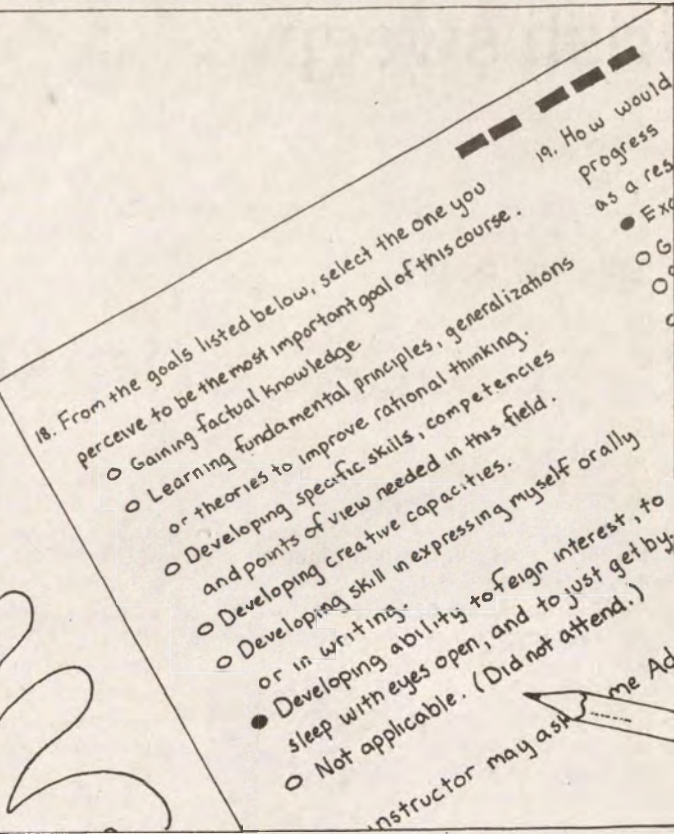 18. From the goals listed below, select the one you
perceive to be the most important goal of this course.
Gaining factual knowledge
Learning fundamental principles, generalizations
or theories to improve rational thinking.
Developing specific skills, competencies
and points of view needed in this field.
Developing creative capacities.
Developing skill in expressing myself orally
or in writing.
Developing ability to feign interest, to
sleep with eyes open, and to just get by.
Not applicable. (Did not attend.)
instructor may ask me Ad
19. How would
progress
as a res
Exc
G